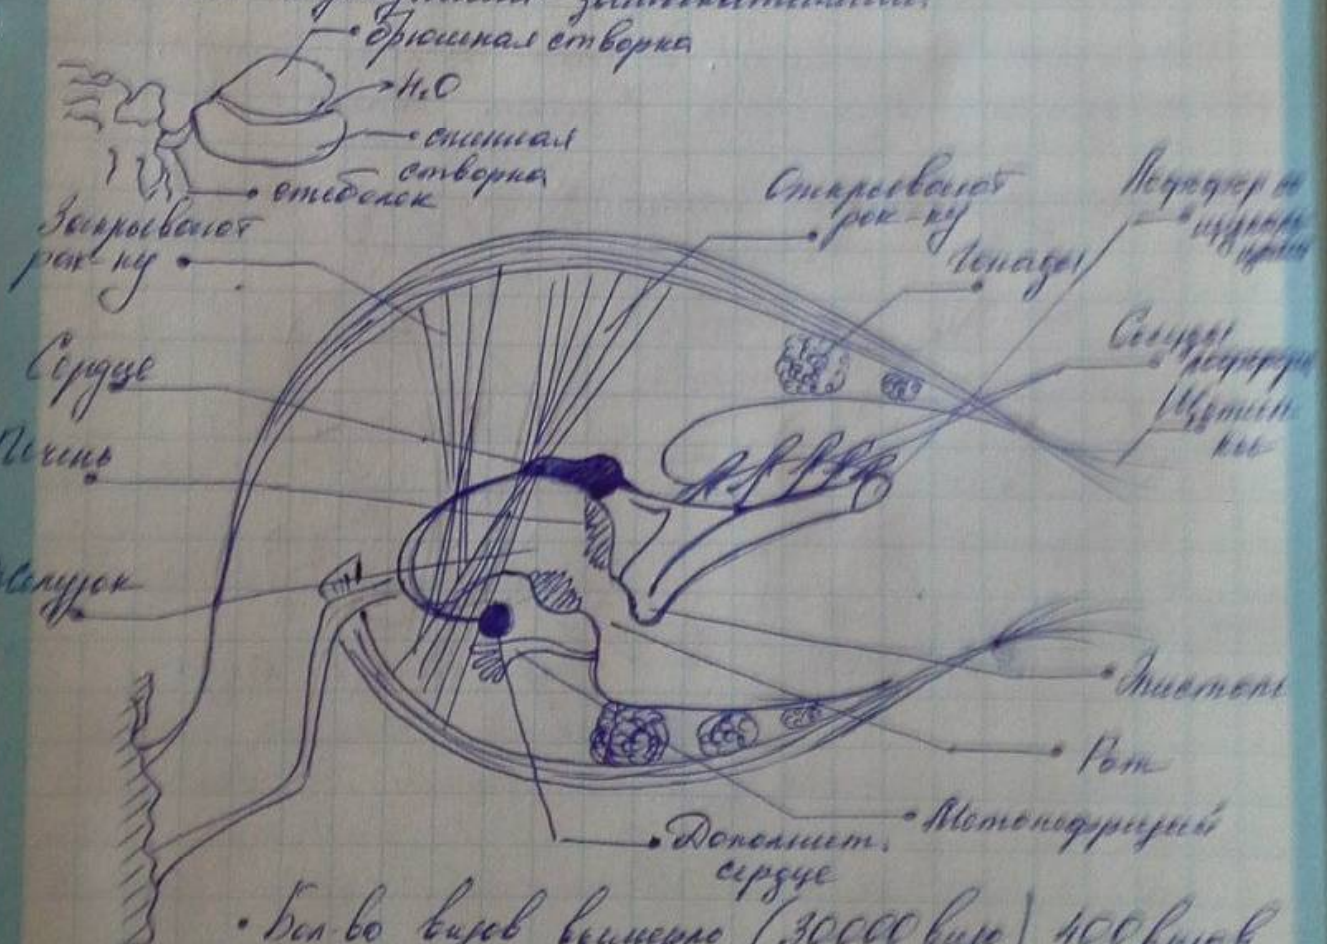 брюшная створка
H₂O
спинная
створка
стебелек
Закрывают
рак-ну
Открывают
рак-ну
Гонады
Лофофор со
щупаль
цами
Сосуды
лофофора
Щетин
ки
Сердце
Печень
Желудок
Эпистом
Рот
Метанефридий
Дополнит.
сердце
• Бол-во видов вымерло (30000 видо) 400 видов